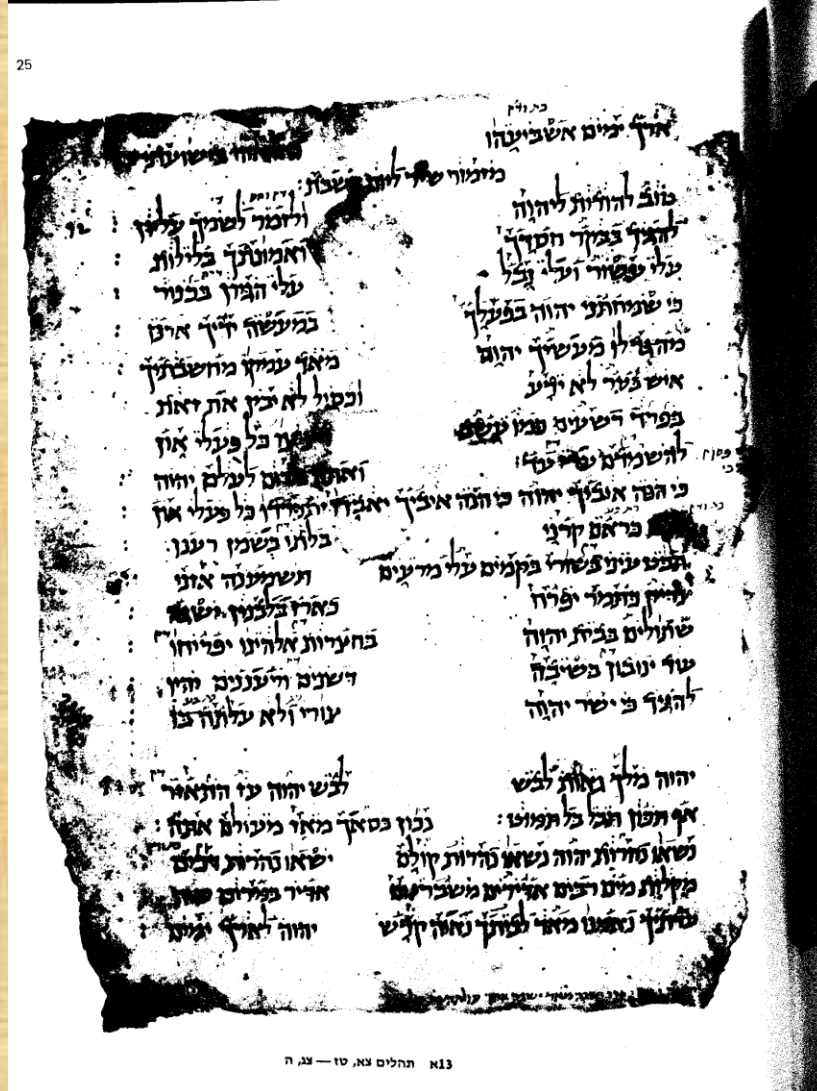 25
אורך ימים אשביעהו בישועתי
מזמור שיר ליום השבת:
טוב להודות ליהוה ולזמר לשמך עליון :
להגיד בבקר חסדך ואמונתך בלילות :
עלי עשור ועלי נבל עלי הגיון בכנור :
כי שמחתני יהוה בפעלך במעשה ידיך ארנן :
מה גדלו מעשיך יהוה מאד עמקו מחשבתיך :
איש בער לא ידע וכסיל לא יבין את זאת
בפרח רשעים כמו עשב כל פעלי און
להשמדם עדי עד: ואתה מרום לעלם יהוה :
כי הנה איביך יהוה כי הנה איביך יאבדו יתפרדו כל פעלי און :
כראם קרני בלתי בשמן רענן :
ותבט עיני בשורי בקמים עלי מרעים תשמענה אזני
צדיק כתמר יפרח כארז בלבנון ישגה :
שתולים בבית יהוה בחצרות אלהינו יפריחו :
עוד ינובון בשיבה דשנים ורעננים יהיו :
להגיד כי ישר יהוה צורי ולא עלתה בו :
יהוה מלך גאות לבש לבש יהוה עז התאזר
אף תכון תבל בל תמוט: נכון כסאך מאז מעולם אתה :
נשאו נהרות יהוה נשאו נהרות קולם ישאו נהרות דכים
מקלות מים רבים אדירים משברי ים אדיר במרום יהוה
עדתיך נאמנו מאד לביתך נאוה קדש יהוה לאורך ימים :
א13 תהלים צא, טז — צג, ה